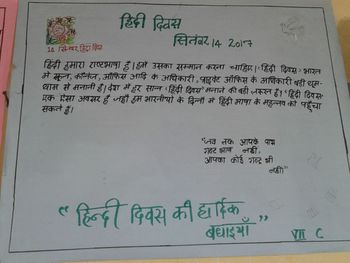 हिंदी दिवस
सितंबर 14 2017
14 सितंबर हिंदी दिवस
हिंदी हमारा राष्ट्रभाषा है। हमें उसका सम्मान करना चाहिए। हिंदी दिवस भारत
में स्कूल, कॉलेज, ऑफिस आदि के अधिकारी, प्राइवेट ऑफिस के अधिकारी बड़ी धूम-
धाम से मनाती है। देश में हर साल 'हिंदी दिवस' मनाने की बड़ी जरूरत है। 'हिंदी दिवस'
एक ऐसा अवसर है जहाँ हम भारतीयों के दिलों में हिंदी भाषा के महत्त्व को पहुँचा
सकते हैं।
"जब तक आपके पास
राष्ट्र भाषा नहीं,
आपका कोई राष्ट्र भी
नहीं"
"हिन्दी दिवस की हार्दिक
बधाइयाँ"
VII C